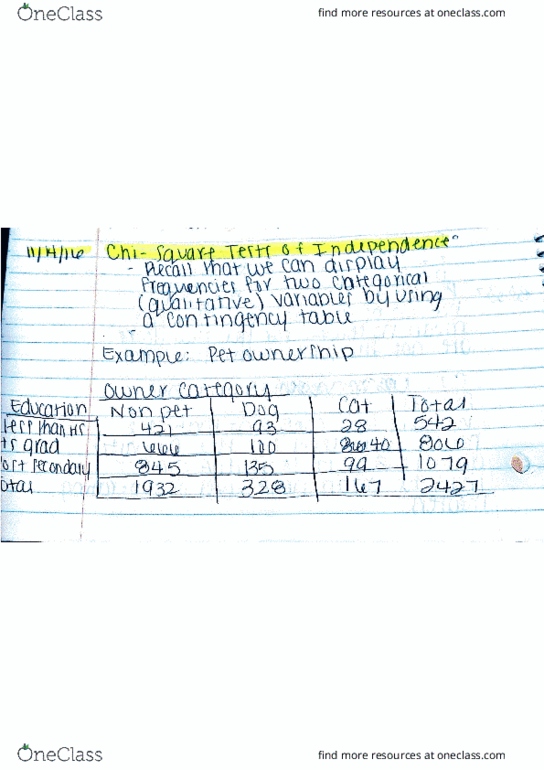 OneClass find more resources at oneclass.com
11/14/16 Chi-Square Tests of Independence
- Recall that we can display
frequencies for two categorical
(qualitative) variables by using
a contingency table
-
Example: Pet ownership
Owner category
Education Non pet Dog Cat Total
less than HS 421 93 28 542
HS grad 666 100 40 806
ost secondary 845 135 99 1079
otal 1932 328 167 2427
OneClass find more resources at oneclass.com